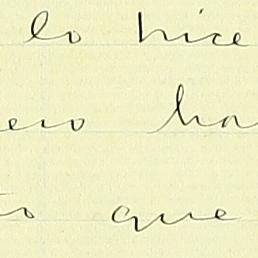 lo hice
ero ha
to que